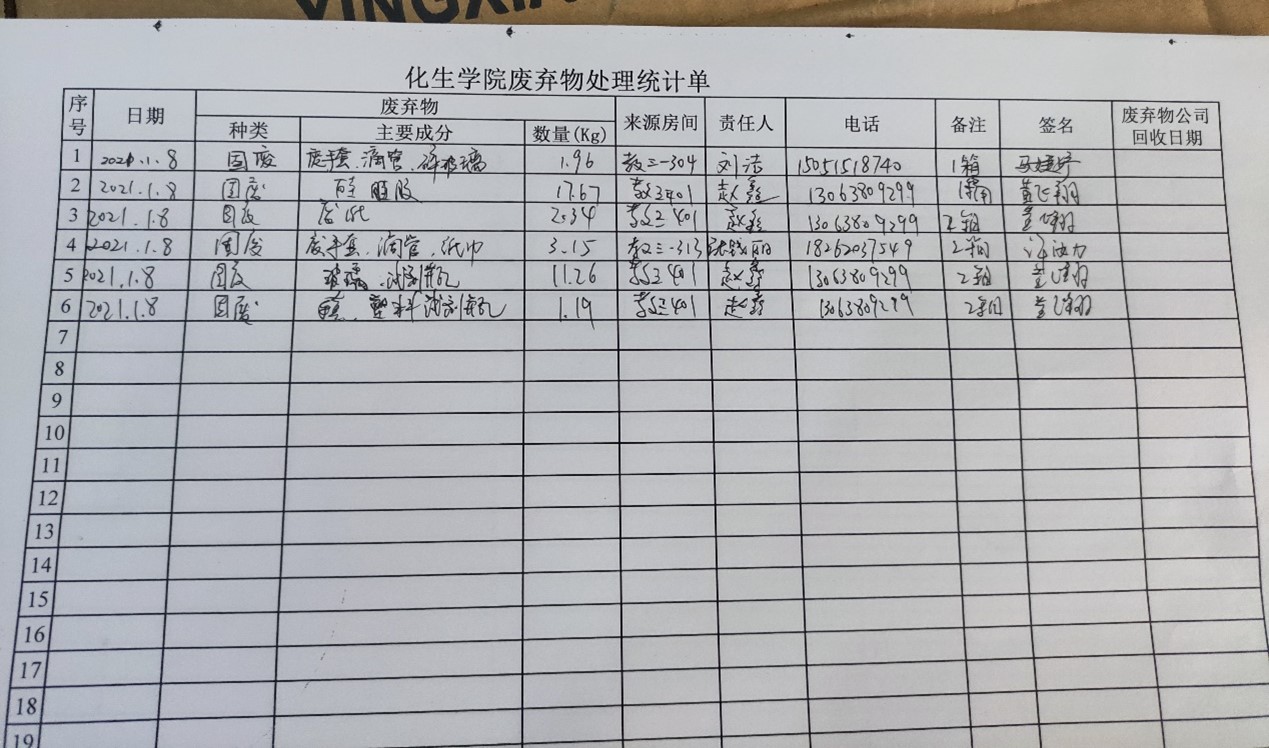 YINGXIA
化生学院废弃物处理统计单
序号 日期 废弃物 来源房间 责任人 电话 备注 签名 废弃物公司回收日期
种类 主要成分 数量(Kg)
1 2021.1.8 固废 废手套、滴管、碎玻璃 1.96 教三-304 刘洁 15051518740 1箱
2 2021.1.8 固废 硅胶 17.67 教三401 赵鑫 13063809299 黄飞翔
3 2021.1.8 固废 废纸 2.34 教三401 赵鑫 13063809299 2箱
4 2021.1.8 固废 废手套、滴管、纸巾 3.15 教三-313 18262037549 2箱
5 2021.1.8 固废 玻璃试剂瓶 11.26 教三401 赵鑫 13063809299 2箱
6 2021.1.8 固废 塑料试剂瓶 1.19 教三401 赵鑫 13063809299 2箱
7
8
9
10
11
12
13
14
15
16
17
18
19